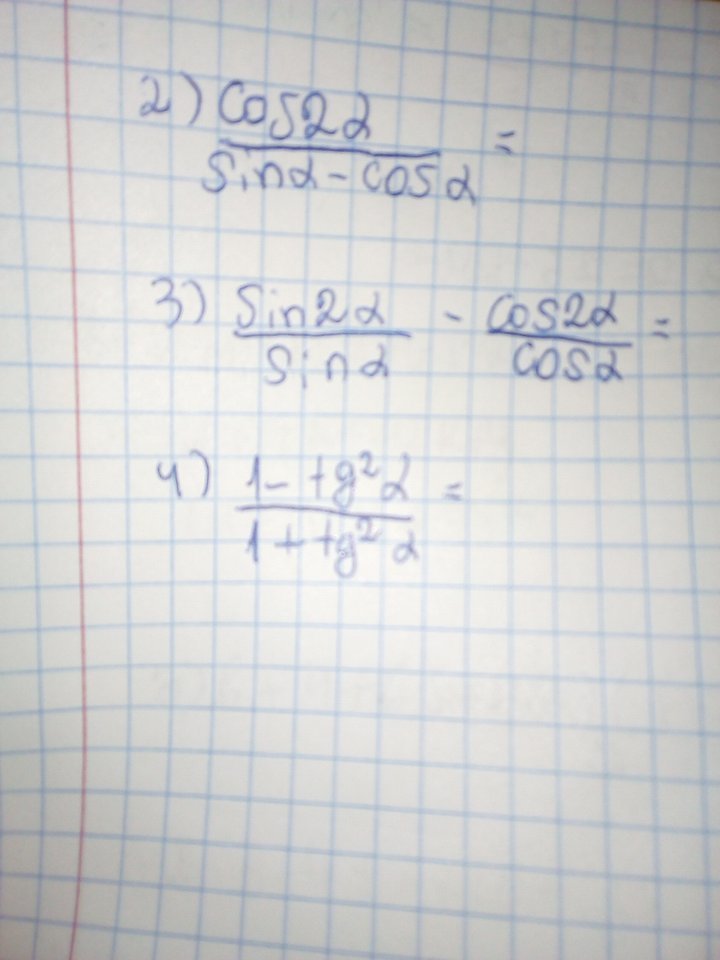 2) cos2α / sinα - cosα =
3) sin2α / sinα - cos2α / cosα =
4) 1 - tg²α / 1 + tg²α =